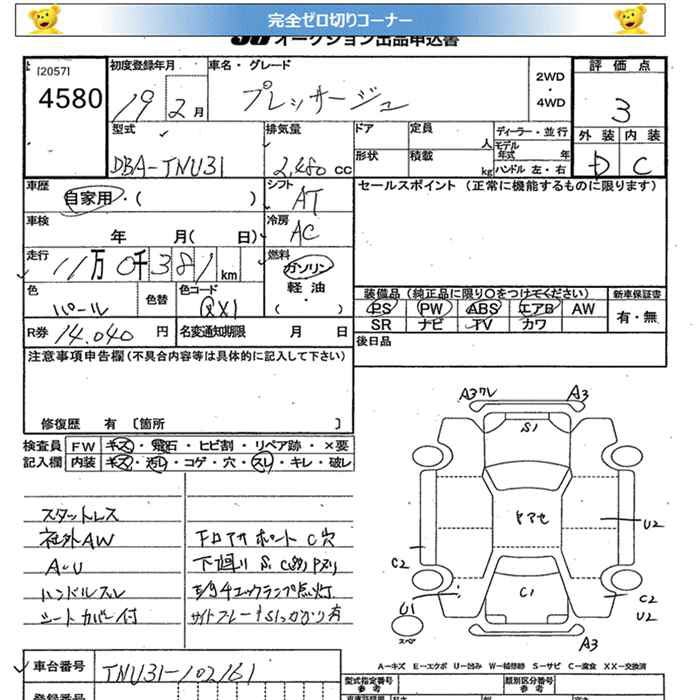 完全ゼロ切りコーナー
オークション出品申込書
[2057]
4580
初度登録年月
19年2月
車名・グレード
プレサージュ
2WD
・
4WD
評価点
3
外装 内装
D C
型式
DBA-TNU31
排気量
2,480 cc
ドア
定員
人
形状
積載
kg
ディーラー・並行
モデル年式 年
ハンドル 左・右
車歴
自家用・( )
シフト
AT
セールスポイント（正常に機能するものに限ります）
車検
年 月( 日)
冷房
AC
走行
11万0千381km
燃料
ガソリン
軽油
( )
色
パール
色替
色コード
QX1
装備品（純正品に限り○をつけてください）
PS PW ABS エアB AW
SR ナビ TV カワ
新車保証書
有・無
R券 14,040円
名変通知期限 月 日
後日品
注意事項申告欄(不具合内容等は具体的に記入して下さい)
修復歴 有 〔箇所 〕
検査員記入欄
FW キズ・飛石・ヒビ割・リペア跡・×要
内装 キズ・汚レ・コゲ・穴・スレ・キレ・破レ
スタットレス
社外AW
A・U
ハンドルスレ
シートカバー付
フロアサポートC穴
下廻り
エンジンチェックランプ点灯
A3ワレ
A3
S1
ヤアセ
U2
C2
C1
C2
U2
U1
スペア
A3
A…キズ E…エクボ U…凹み W…補修跡 S…サビ C…腐食 XX…交換済
車台番号
TNU31-102161
型式指定番号
参考
類別区分番号
参考
登録番号